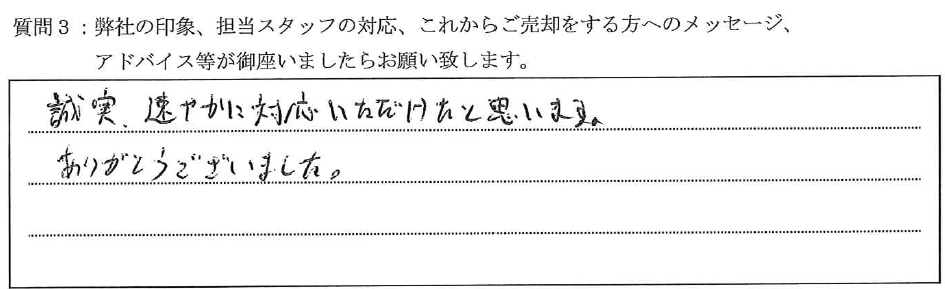 質問3：弊社の印象、担当スタッフの対応、これからご売却をする方へのメッセージ、
アドバイス等が御座いましたらお願い致します。
誠実、速やかに対応いただけたと思います。
ありがとうございました。